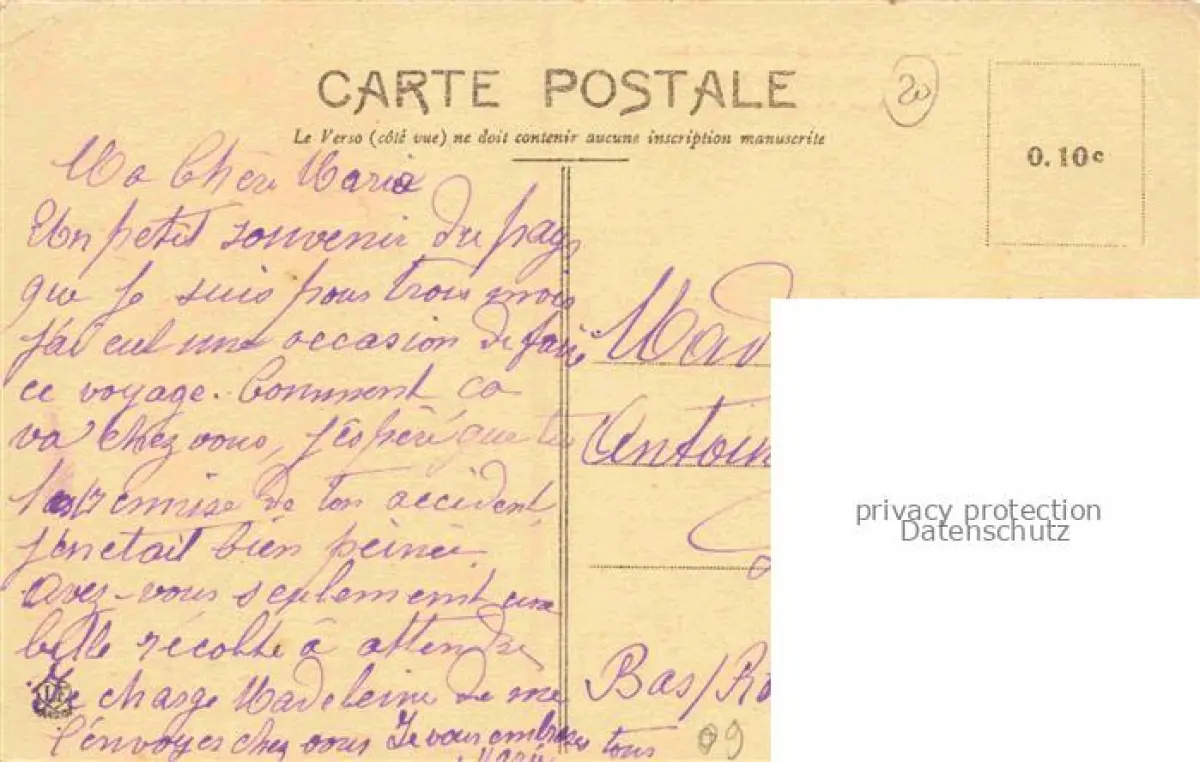 CARTE POSTALE
Le Verso (côté vue) ne doit contenir aucune inscription manuscrite
20
0.10c
Ma Chère Maria
Un petit souvenir du pays
que je suis pour trois mois
j'ai eul une occasion de faire
ce voyage. Comment ca
va chez vous, j'éspère que tu
remise de ton accident,
j'en etait bien peinée
avez-vous seulement une
belle récolte à attendre
Je charge Madeleine de me
l'envoyer chez vous Je vous embrasse tous
Marie
Mad
Antoin
Bas/R
09
privacy protection
Datenschutz